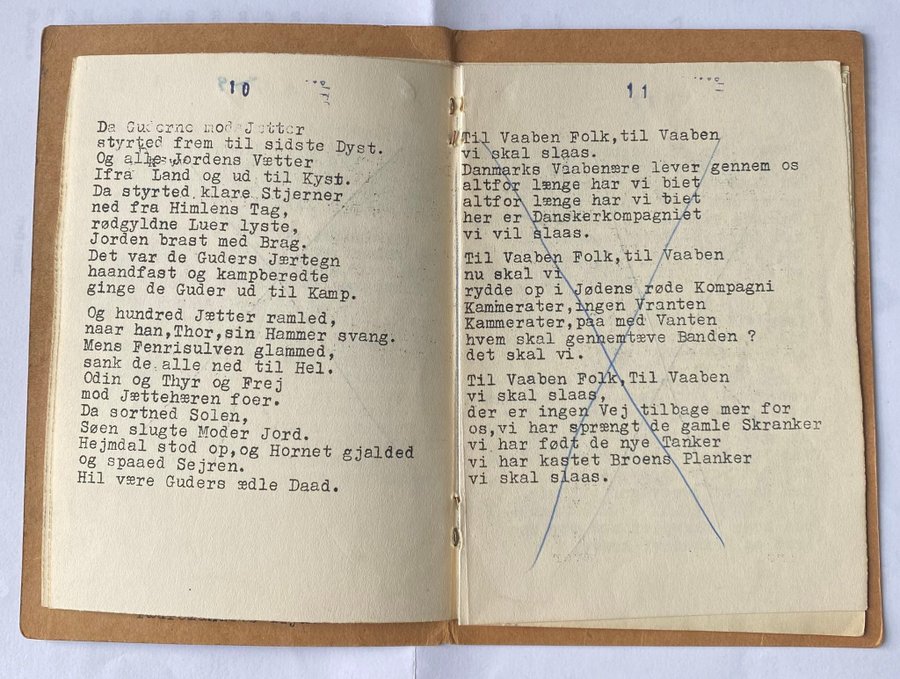 10
Da Guderne mod Jætter
styrted frem til sidste Dyst.
Og alle Jordens Vætter
Ifra Land og ud til Kyst.
Da styrted klare Stjerner
ned fra Himlens Tag,
rødgyldne Luer lyste,
Jorden brast med Brag.
Det var de Guders Jærtegn
haandfast og kampberedte
ginge de Guder ud til Kamp.
Og hundred Jætter ramled,
naar han,Thor,sin Hammer svang.
Mens Fenrisulven glammed,
sank de alle ned til Hel.
Odin og Thyr og Frej
mod Jættehæren foer.
Da sortned Solen,
Søen slugte Moder Jord.
Hejmdal stod op,og Hornet gjalded
og spaaed Sejren.
Hil være Guders ædle Daad.
11
Til Vaaben Folk,til Vaaben
vi skal slaas.
Danmarks Vaabenære lever gennem os
altfor længe har vi biet
altfor længe har vi biet
her er Danskerkompagniet
vi vil slaas.
Til Vaaben Folk,til Vaaben
nu skal vi
rydde op i Jødens røde Kompagni
Kammerater,ingen Vranten
Kammerater,paa med Vanten
hvem skal gennemtæve Banden ?
det skal vi.
Til Vaaben Folk,Til Vaaben
vi skal slaas,
der er ingen Vej tilbage mer for
os,vi har sprængt de gamle Skranker
vi har født de nye Tanker
vi har kastet Broens Planker
vi skal slaas.